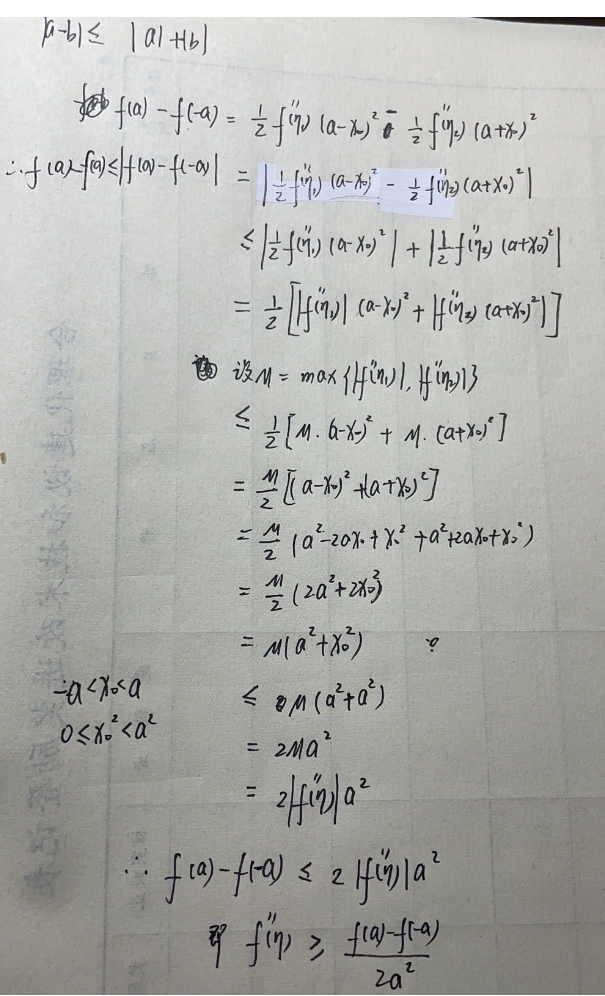 |a-b| ≤ |a|+|b|
f(a) - f(-a) = 1/2 f''(η₁) (a-x₀)² - 1/2 f''(η₂) (a+x₀)²
∴ f(a)-f(a) ≤ |f(a)-f(-a)| = |1/2 f''(η₁) (a-x₀)² - 1/2 f''(η₂) (a+x₀)²|
≤ |1/2 f''(η₁) (a-x₀)²| + |1/2 f''(η₂) (a+x₀)²|
= 1/2 [|f''(η₁)| (a-x₀)² + |f''(η₂) (a+x₀)²|]
设M = max{|f''(η₁)|, |f''(η₂)|}
≤ 1/2 [M·(a-x₀)² + M·(a+x₀)²]
= M/2 [(a-x₀)² + (a+x₀)²]
= M/2 (a²-2ax₀+x₀²+a²+2ax₀+x₀²)
= M/2 (2a²+2x₀²)
= M(a²+x₀²)
-a<x₀<a ≤ M(a²+a²)
0≤x₀²<a²
= 2Ma²
= 2|f''(η)|a²
∴ f(a)-f(-a) ≤ 2|f''(η)|a²
即 f''(η) ≥ f(a)-f(-a)/2a²